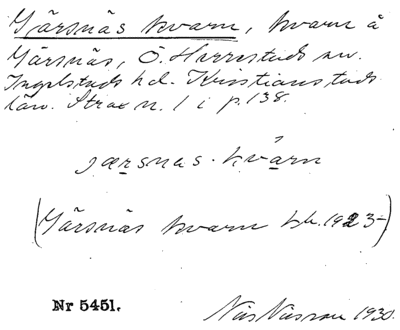 Gärsnäs kvarn, kvarn å
Gärsnäs, Ö. Herrestads sn.
Ingelstads hd. Kristianstads
län. Strax n. 1 i p. 138.
jærsnas-kvarn
(Gärsnäs kvarn kb. 1923-)
Nr 5451.
Nils Nilsson 1930.